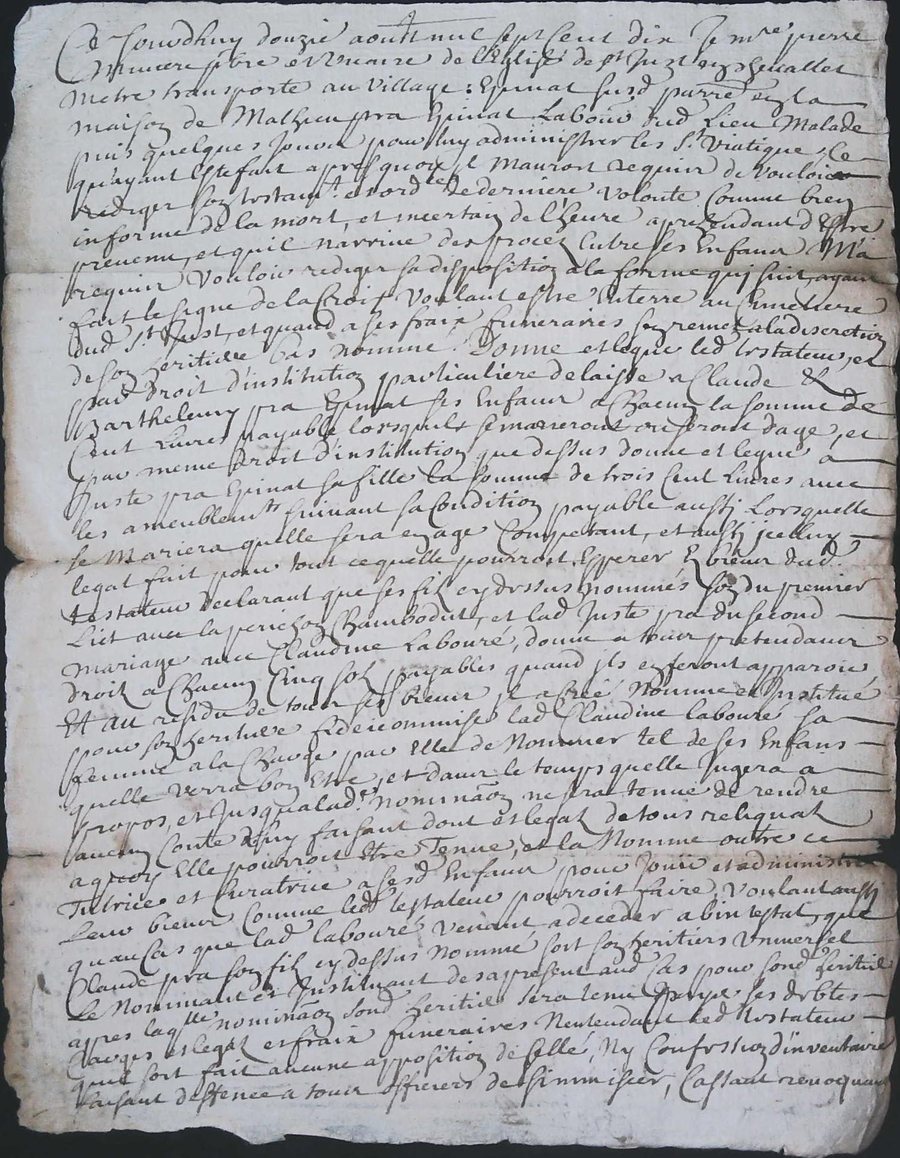 Ce Jourdhuy douzie aoust mil sept Cent dix Je mre pierre
ptre et vicaire de l'Eglise de st Just en chevallet
metre transporté au village Epinat susd parre en la
maison de Mathieu pra Epinat Labouré dud Lieu Malade
puis quelques Jours pour luy administrer les St Viatique, Ce
quayant Este fait apres quoy il Mauroit requis de vouloir
rediger son testamt. et ord de derniere volonté Comme bien
informe de la mort, et incertain de l'heure aprehendant d'Estre
prevenu, et quil n'arrive des proces Entre ses Enfans M'a
requis Vouloir rediger sa disposition a la forme qui suit, ayant
fait le signe de la Croix Voulant estre Enterré au Cimetiere
dud St Just, et quand a ses fraix funeraires sen remet a la discretion
de son heritiere bas nommé. Donne et legue led testateur, et
par droit d'institution particuliere delaisse a Claude &
Barthelemy pra Epinat ses Enfans a Chacun la somme de
Cent Livres payable lorsquils se marieront ou seront d'age, et
par meme droit d'institution que dessus donne et legue a
Juste pra Epinat sa fille la somme de trois Cent Livres avec
les ameublemts suivant sa Condition payable aussi Lorsquelle
se Mariera quelle sera en age Competant, et aussi icelluy
legat fait pour tout ce quelle pourroit Esperer Es biens dud.
testateur declarant que ses fils cy dessus nommés son du premier
Lict avec la perichon Chambodut, et lad Juste pra du second
mariage avec Claudine Labouré, donne a tous pretendans
droit a Chacun Cinq sols payables quand ils en feront apparoir
Et au residu de tous ses biens il a Créé Nommé et Institué
pour son heritiere fideicommise lad Claudine labouré sa
femme a la Charge par Elle de Nommer tel de ses Enfans
quelle verra bon Etre, et dans le temps quelle Jugera a
propos, et Jusqua lad. nominaon ne sera tenue de rendre
aucun Conte luy faisant dont et legat de tous reliquat
a quoy Elle pourroit Etre Tenue, et la Nomme outre ce
Tutrice et Curatrice a sesd Enfans pour Jouir et administrer
Leur biens Comme led testateur pourroit faire, Voulant aussy
quau Cas que lad labouré venant a deceder abintestat, que
Claude pra son fils cy dessus nommé soit son heritiers universel
Le Nommant et Instituant des apresent aud Cas pour sond heritier
apres laqlle nominaon sond heritier sera tenu payer ses debtes
Charges et legat et fraix funeraires N'entendant led testateur
que soit fait aucune apposition de sellé, Ny Confession d'inventaire
faisant deffence a tous officiers de simmiscer, Cassant revoquant